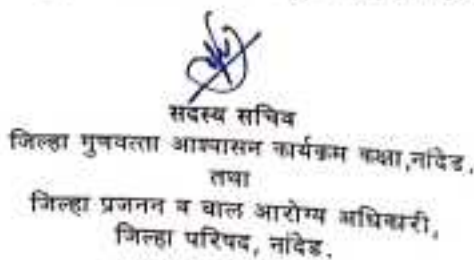 सदस्य सचिव
जिल्हा गुणवत्ता आश्वासन कार्यक्रम कक्षा,नांदेड.
तथा
जिल्हा प्रजनन व बाल आरोग्य अधिकारी,
जिल्हा परिषद, नांदेड.